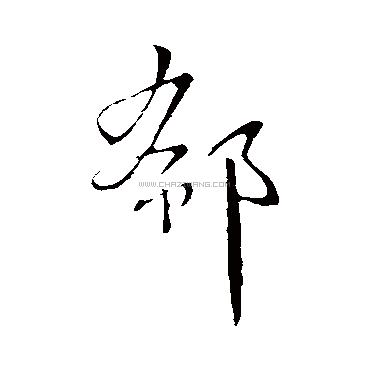 郗
WWW.CHAZIWANG.COM